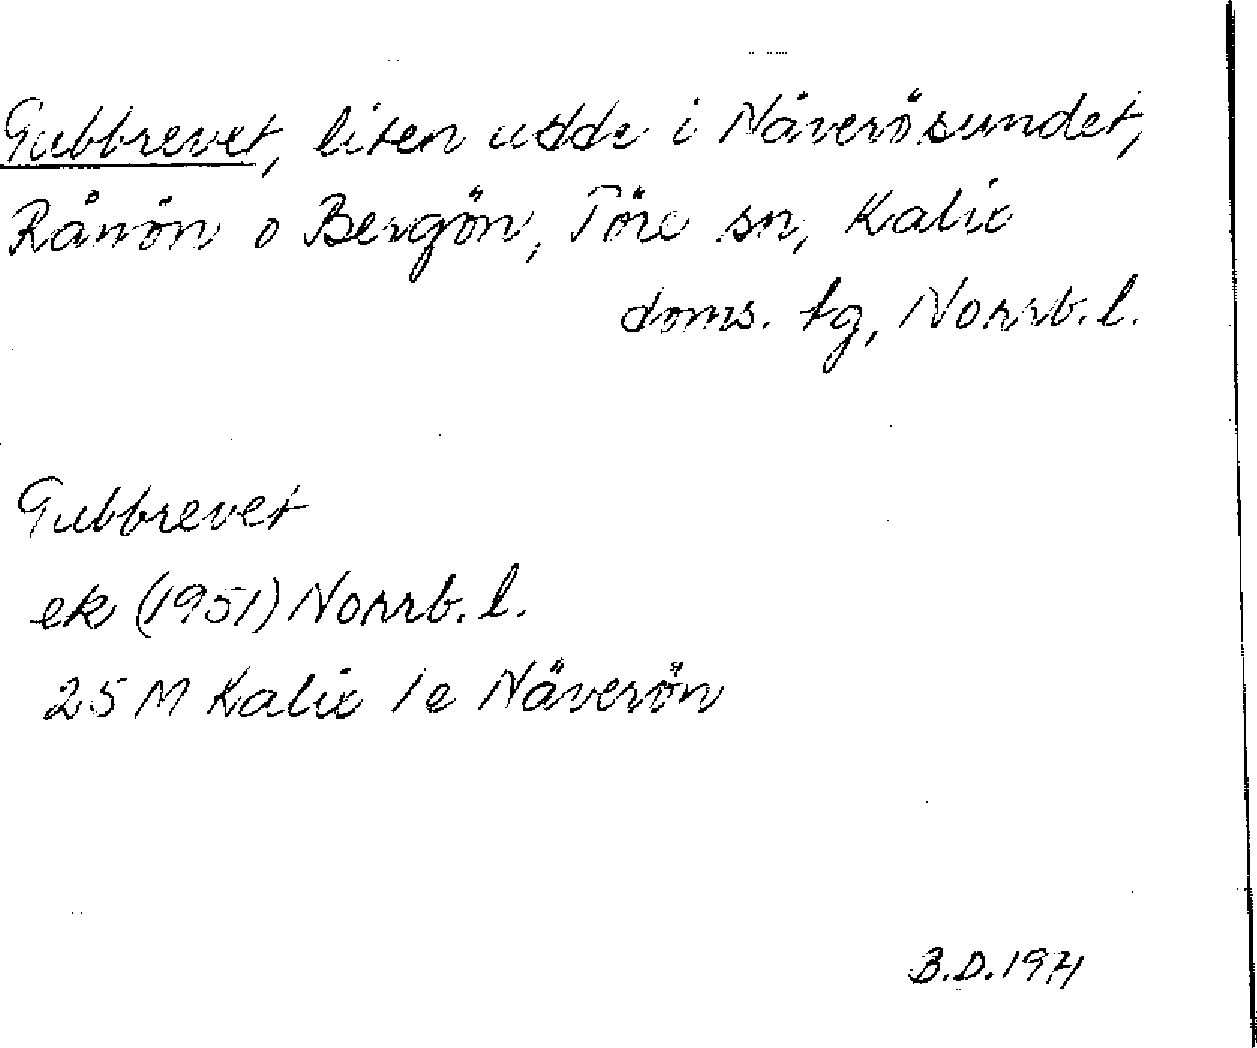 Gubbrevet, liten udde i Näverösundet,
Rånön o Bergön, Töre sn, Kalix
doms. tg, Norrb. l.
Gubbrevet
ek (1951) Norrb. l.
25 M Kalix 1e Näverön
B.D. 1971